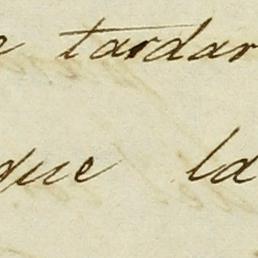 e tardar
que la